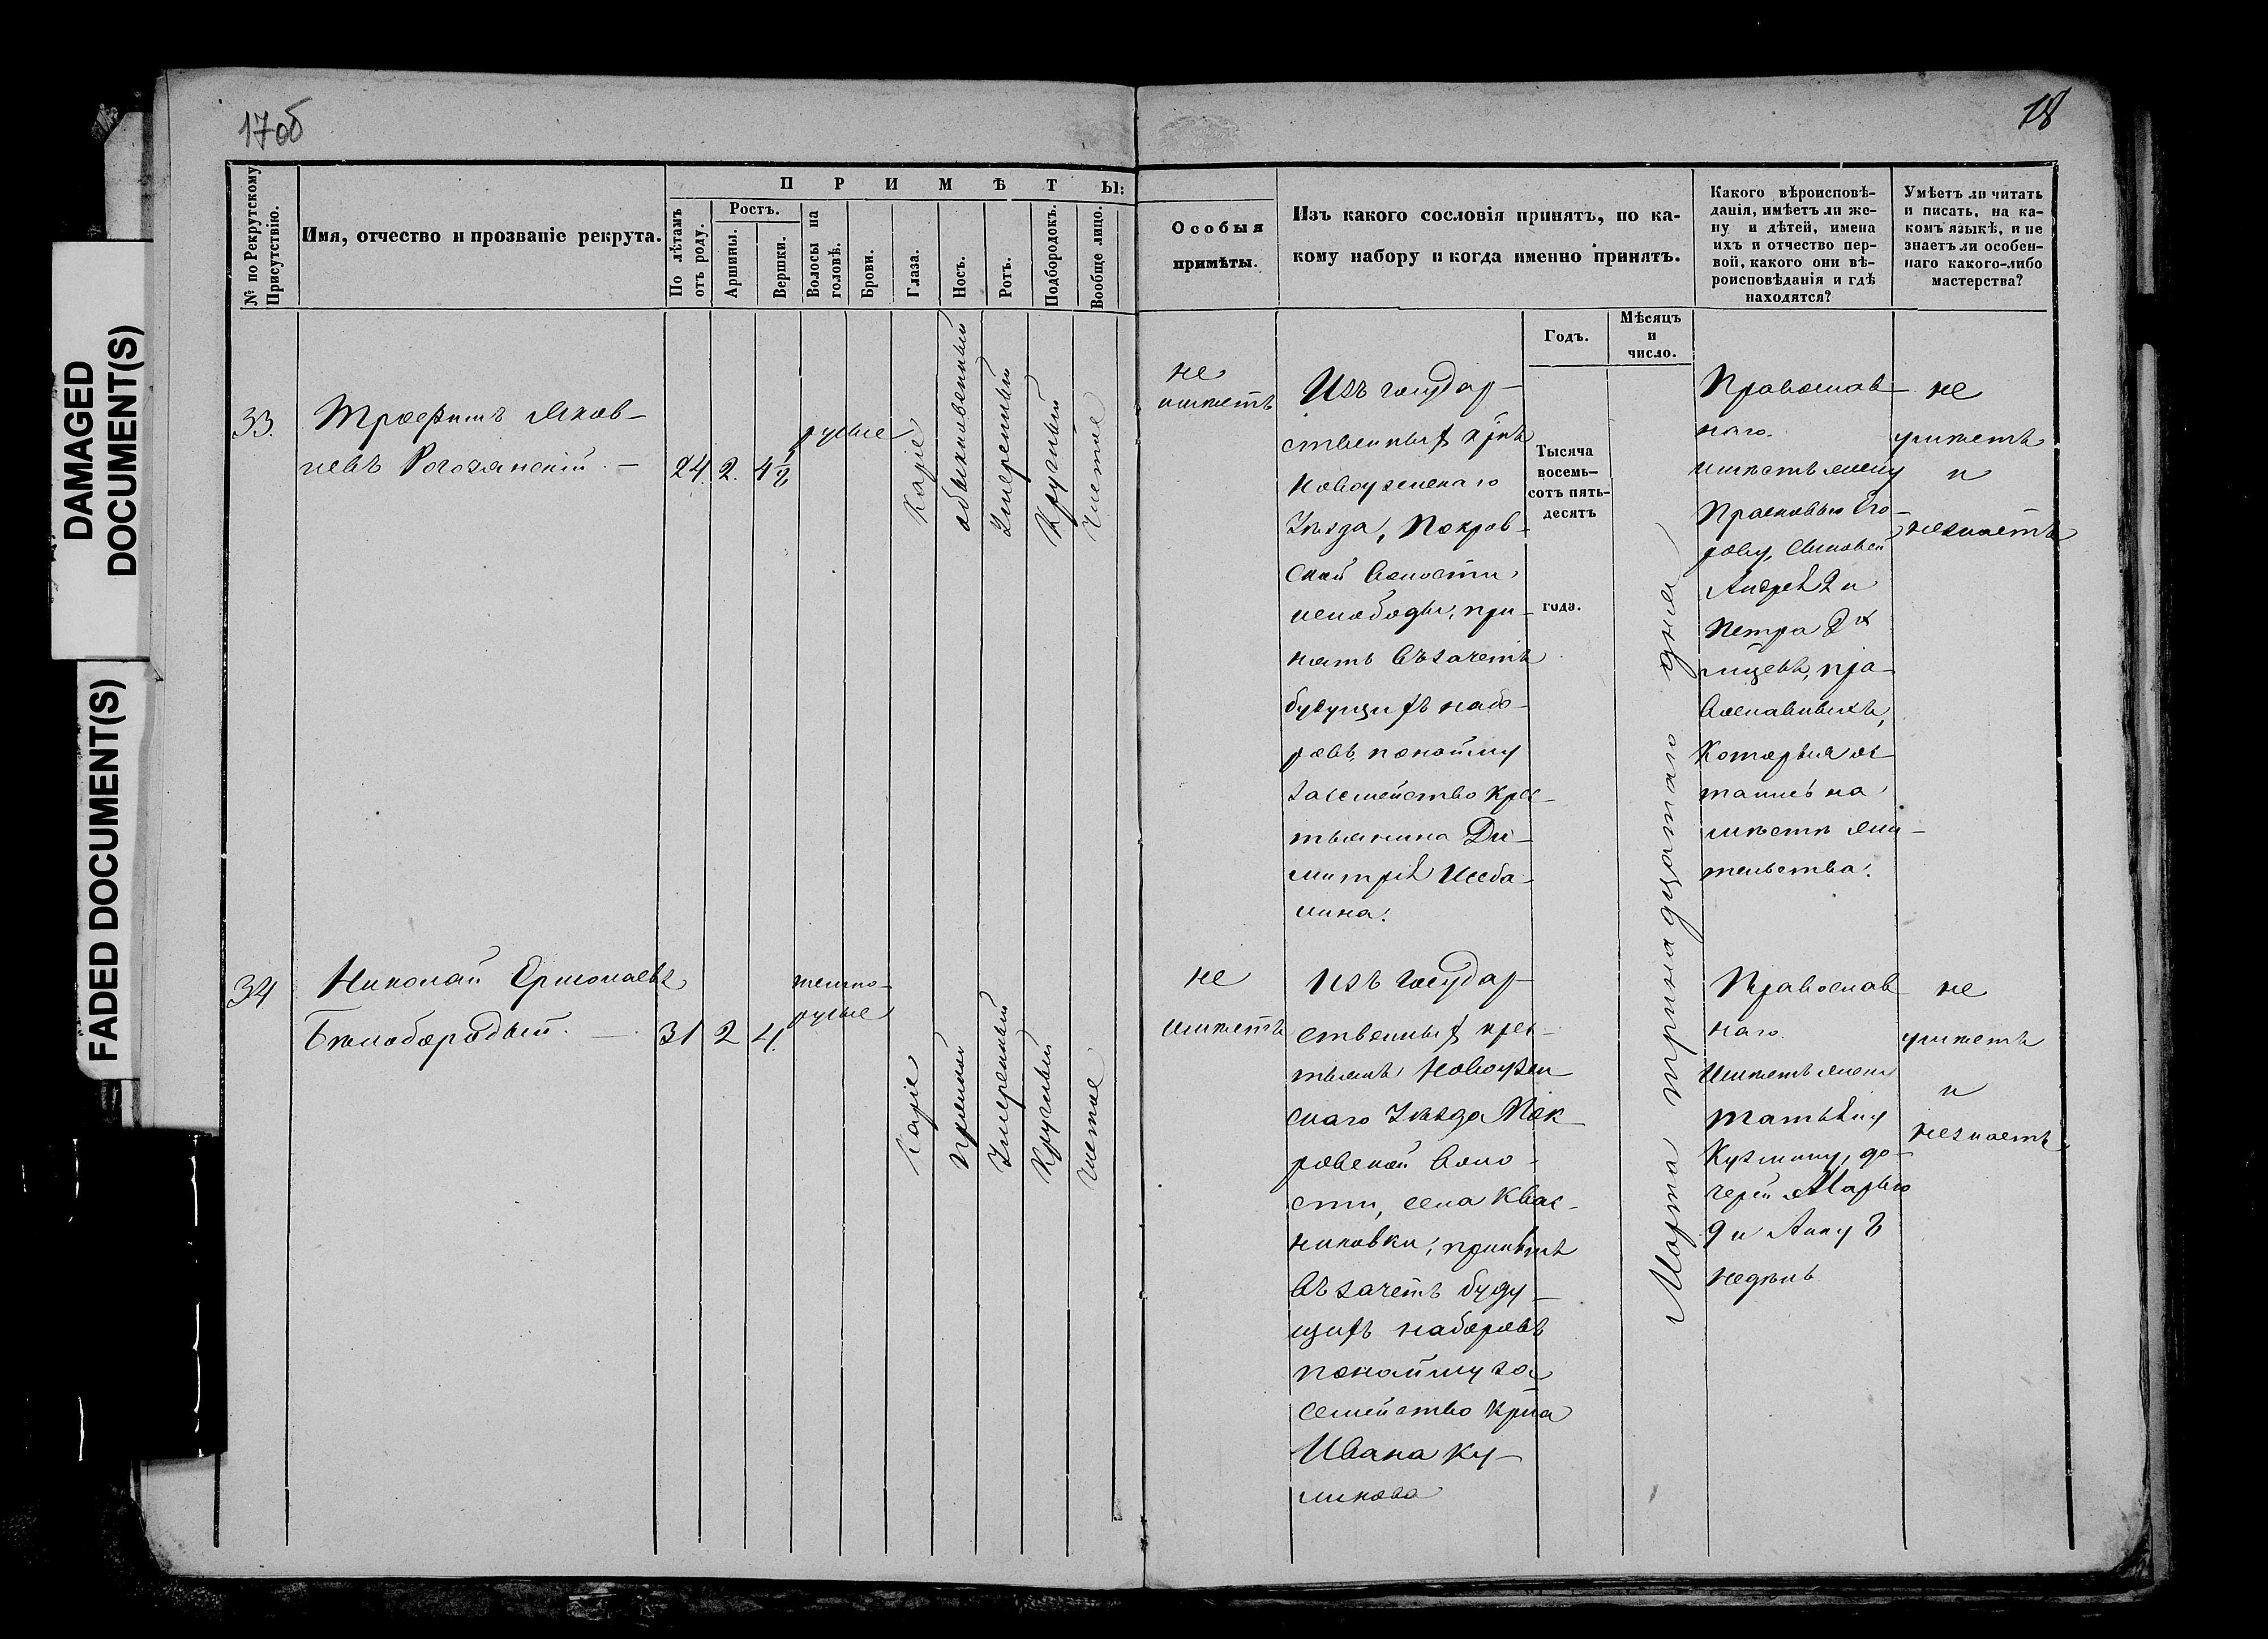 17об
18
DAMAGED
DOCUMENT(S)
FADED DOCUMENT(S)
№ по Рекрутскому
Присутствію.
Имя, отчество и прозваніе рекрута.
ПРИМѢТЫ:
По лѣтамъ
отъ роду.
Ростъ.
Аршины.
Вершки.
Волосы на
головѣ.
Брови.
Глаза.
Носъ.
Ротъ.
Подбородокъ.
Вообще лицо.
Особыя
примѣты.
Изъ какого сословія принятъ, по ка-
кому набору и когда именно принятъ.
Годъ.
Мѣсяцъ
и
число.
Какого вѣроисповѣ-
данія, имѣетъ ли же-
ну и дѣтей, имена
ихъ и отчество пер-
вой, какого они вѣ-
роисповѣданія и гдѣ
находятся?
Умѣетъ ли читать
и писать, на ка-
комъ языкѣ, и не
знаетъ ли особен-
наго какого-либо
мастерства?
33.
Трофимъ Яков-
левъ Рогозянскій. —
24. 2. 4½
русые
Каріе
обыкновенный
Умеренный
Круглый
Чистое
не
имѣетъ
Изъ государ-
ственныхъ
Новоузенскаго
Уѣзда, Покров-
ской Волости
слободы, при-
нятъ въ зачетъ
будущихъ набо-
ровъ, по найму
за семейство Крес-
тьянина Ди-
митрія
Тысяча
восемь-
сотъ пять-
десятъ
года.
Марта тринадцатаго дня
Православ-
наго.
имѣетъ жену
Прасковью Его-
рову, сыновей
Андрея 2 и
Петра
пра-
вославныхъ,
Которые ос-
тались на
мѣстѣ жи-
тельства.
не
умѣетъ
и
незнаетъ
34
Николай Ермолаевъ
Бѣлобородый. —
31 2 4.
темно-
русые
Каріе
Прямой
Умеренный
Круглый
Чистое
не
имѣетъ
Изъ государ-
ственныхъ крес-
тьянъ Новоузен-
скаго Уѣзда Пок-
ровской Воло-
сти, села Квас-
никовки, принятъ
въ зачетъ буду-
щихъ наборовъ
по найму за
семейство Кр-на
Ивана Ку-
ликова
Православ-
наго.
Имѣетъ жену
Татьяну
Кузмину, до-
черей Марью
9 и Анну 8
недѣль
не
умѣетъ
и
незнаетъ